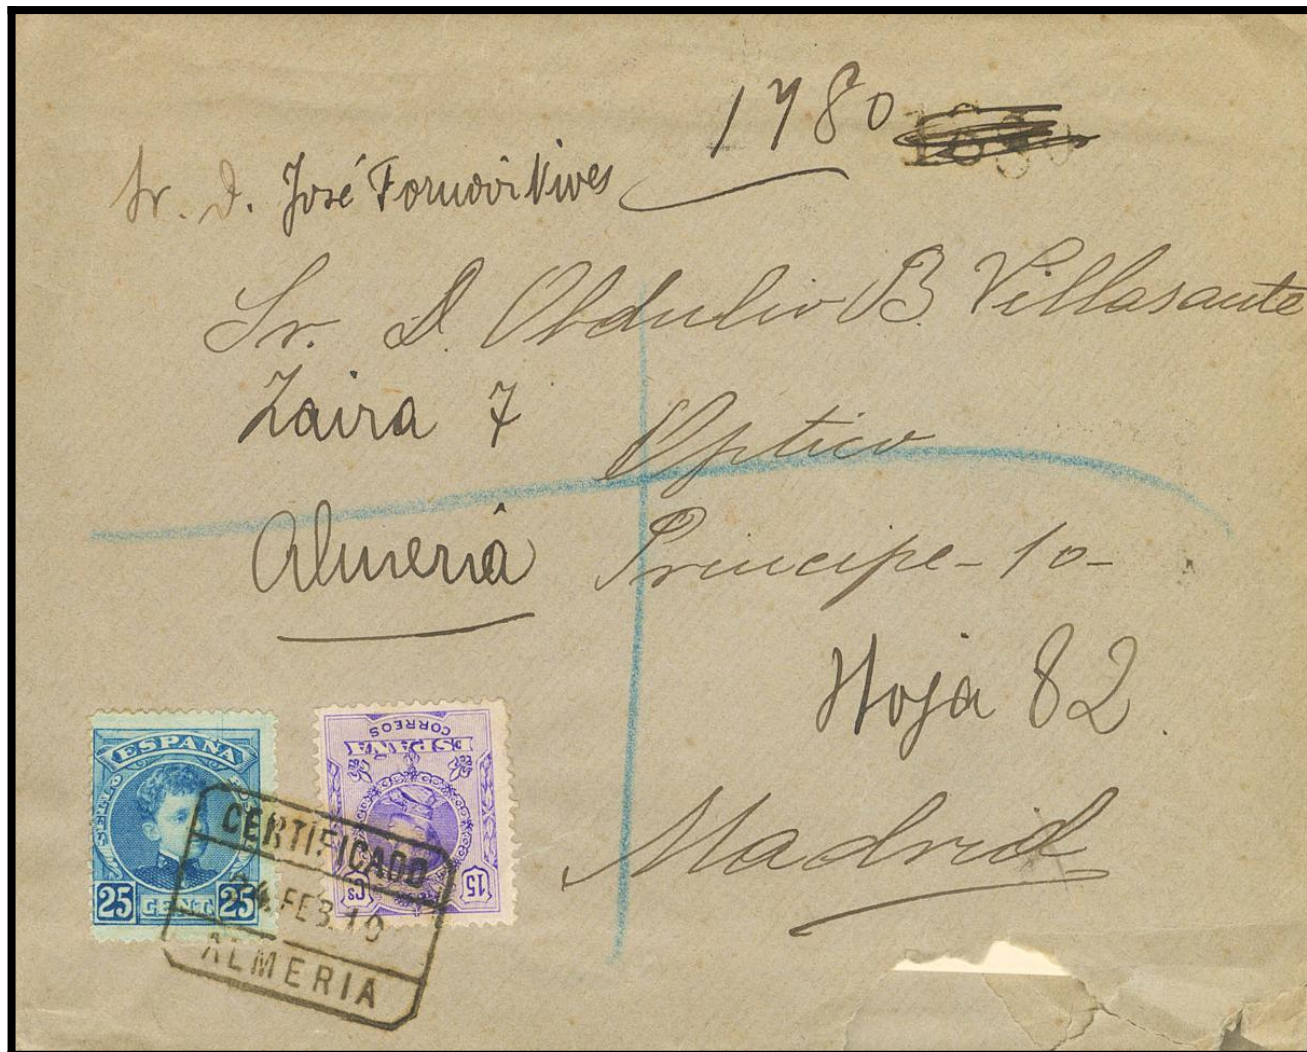 1780
Sr. D. José Fornovi Vives
Sr. D. Obdulio B. Villasante
Zaira 7
Optico
Almeria
Principe - 10 -
Hoja 82
Madrid
ESPAÑA
SELLO
25 CENT. 25
ESPAÑA
CORREOS
15 Cs
CERTIFICADO
24 FEB. 10
ALMERIA